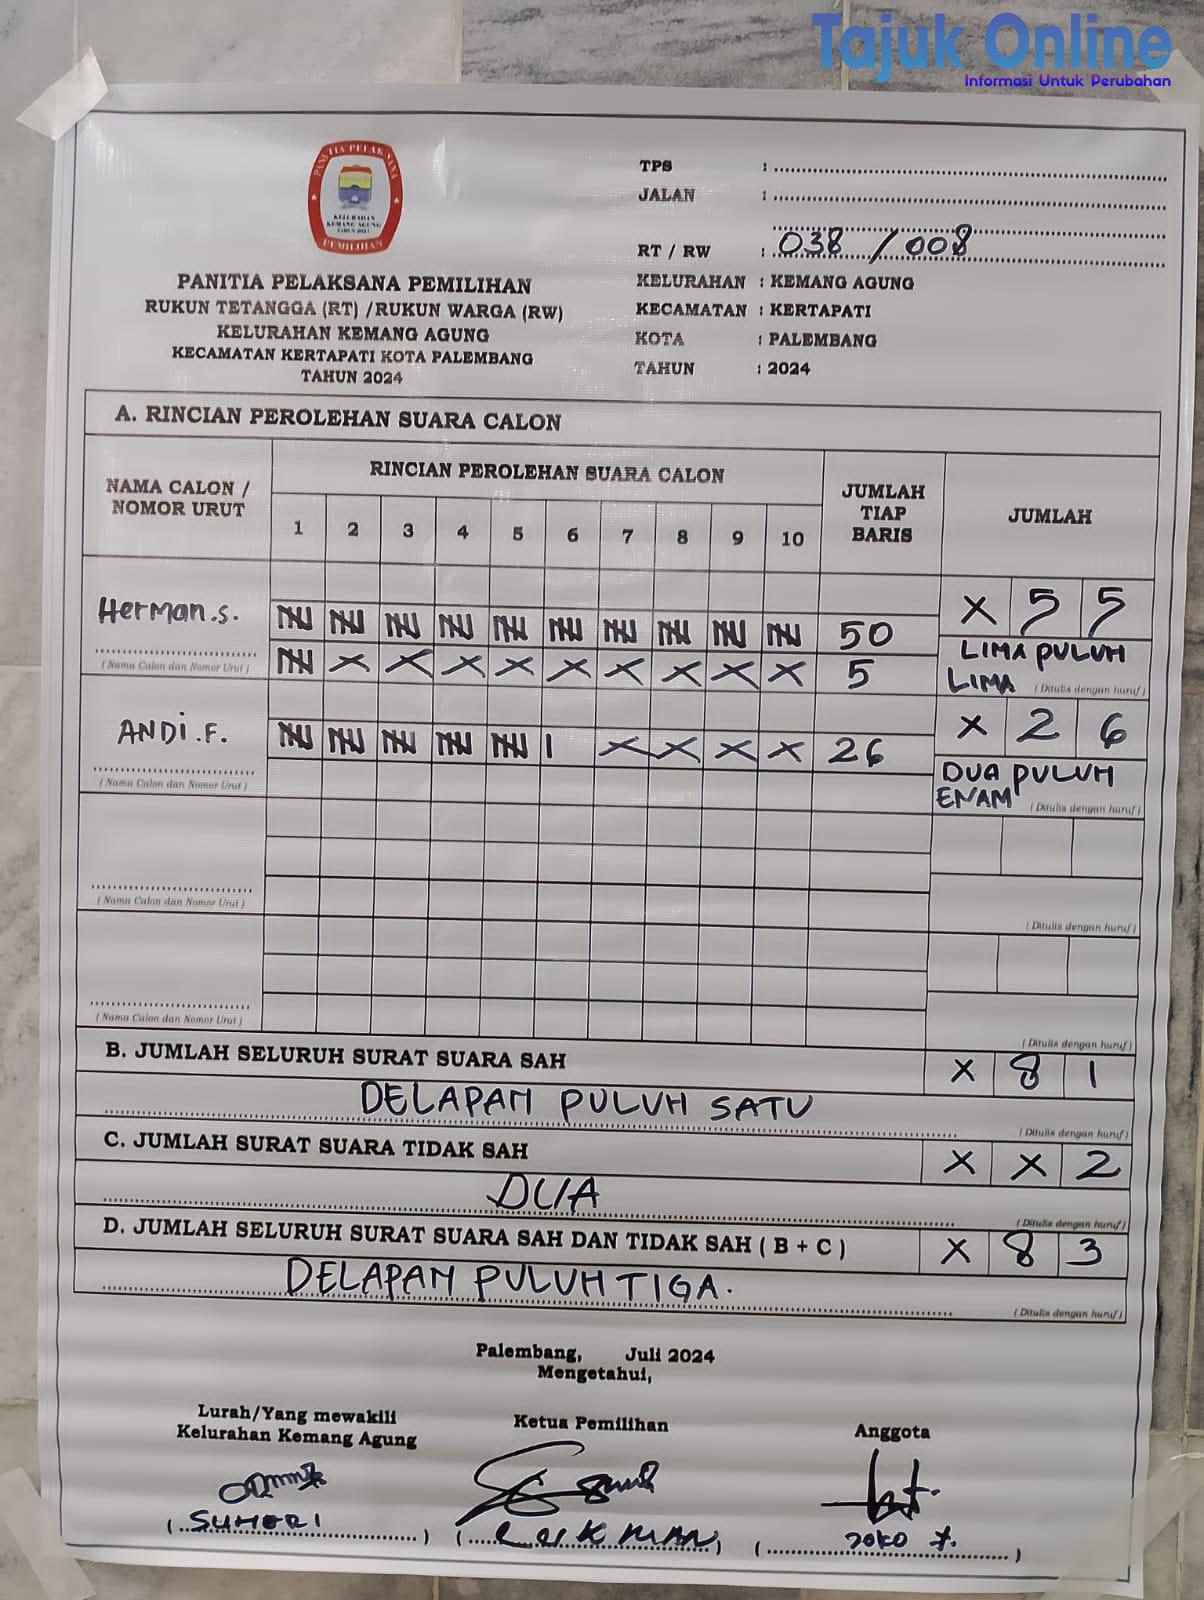 Tajuk Online
Informasi Untuk Perubahan
PANITIA PELAKSANA
KELURAHAN
KEMANG AGUNG
TAHUN 2024
PEMILIHAN
PANITIA PELAKSANA PEMILIHAN
RUKUN TETANGGA (RT) /RUKUN WARGA (RW)
KELURAHAN KEMANG AGUNG
KECAMATAN KERTAPATI KOTA PALEMBANG
TAHUN 2024
TPS :
JALAN :
RT / RW : 038 / 008
KELURAHAN : KEMANG AGUNG
KECAMATAN : KERTAPATI
KOTA : PALEMBANG
TAHUN : 2024
A. RINCIAN PEROLEHAN SUARA CALON
NAMA CALON /
NOMOR URUT
RINCIAN PEROLEHAN SUARA CALON
1 2 3 4 5 6 7 8 9 10
JUMLAH
TIAP
BARIS
JUMLAH
Herman.s.
( Nama Calon dan Nomor Urut )
50
X X X X X X X X X 5
X 5 5
LIMA PULUH
LIMA ( Ditulis dengan huruf )
ANDi.F.
( Nama Calon dan Nomor Urut )
X X X X 26
X 2 6
DUA PULUH
ENAM ( Ditulis dengan huruf )
( Nama Calon dan Nomor Urut )
( Ditulis dengan huruf )
( Nama Calon dan Nomor Urut )
( Ditulis dengan huruf )
B. JUMLAH SELURUH SURAT SUARA SAH X 8 1
DELAPAN PULUH SATU
( Ditulis dengan huruf )
C. JUMLAH SURAT SUARA TIDAK SAH X X 2
DUA
( Ditulis dengan huruf )
D. JUMLAH SELURUH SURAT SUARA SAH DAN TIDAK SAH ( B + C ) X 8 3
DELAPAN PULUH TIGA.
( Ditulis dengan huruf )
Palembang, Juli 2024
Mengetahui,
Lurah/Yang mewakili
Kelurahan Kemang Agung
(SUHERI)
Ketua Pemilihan
Anggota